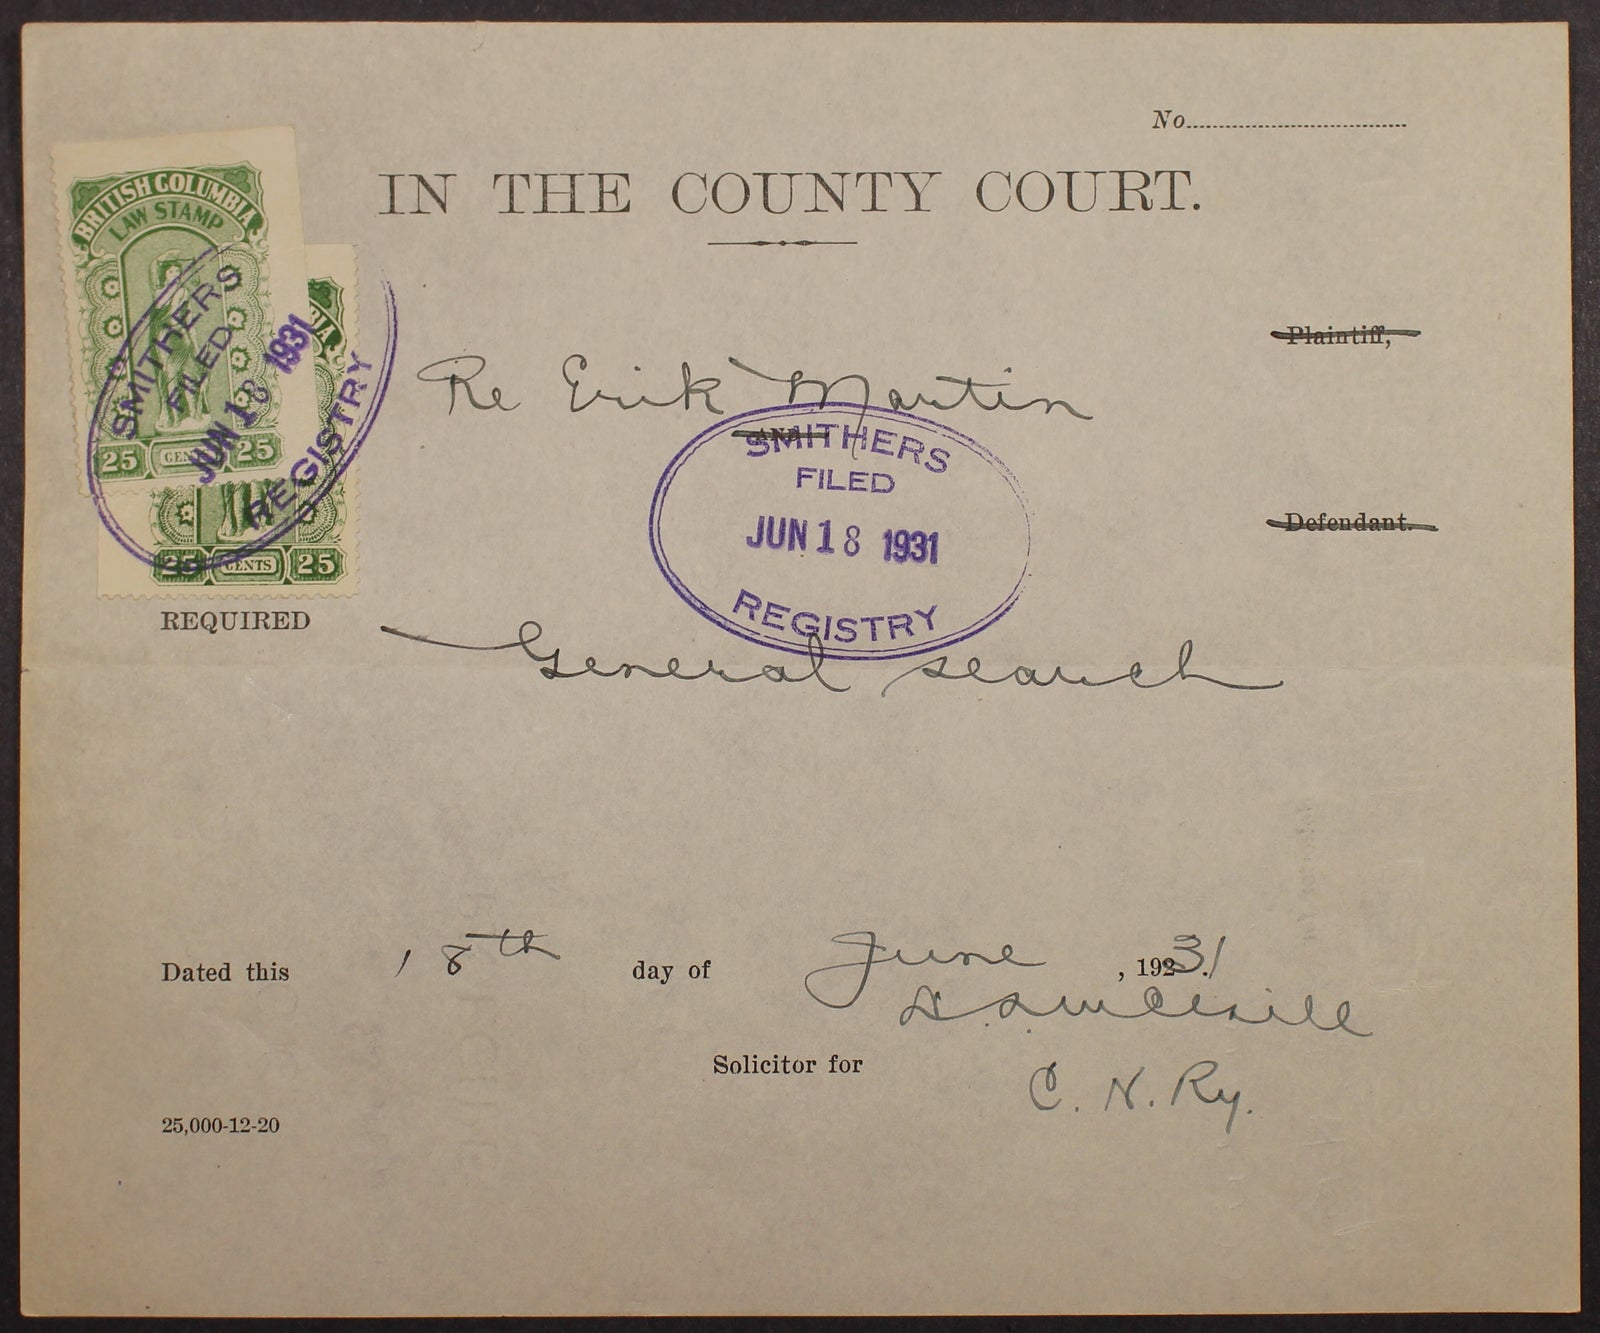 No
IN THE COUNTY COURT.
BRITISH COLUMBIA
LAW STAMP
25 CENTS 25
BIA
25 CENTS 25
SMITHERS
FILED
JUN 18 1931
REGISTRY
Plaintiff,
Re Erik Martin
AND
SMITHERS
FILED
JUN 18 1931
REGISTRY
Defendant.
REQUIRED
General search
Dated this 18th day of June, 19231.
Solicitor for
C. N. Ry.
25,000-12-20